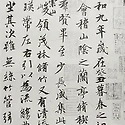 和九年歲在癸丑暮春之
會稽山陰之蘭亭脩稧
羣賢畢至少長咸集此
領茂林脩竹又有清流
暎帶左右引以為流觴
坐其次雖無絲竹管弦